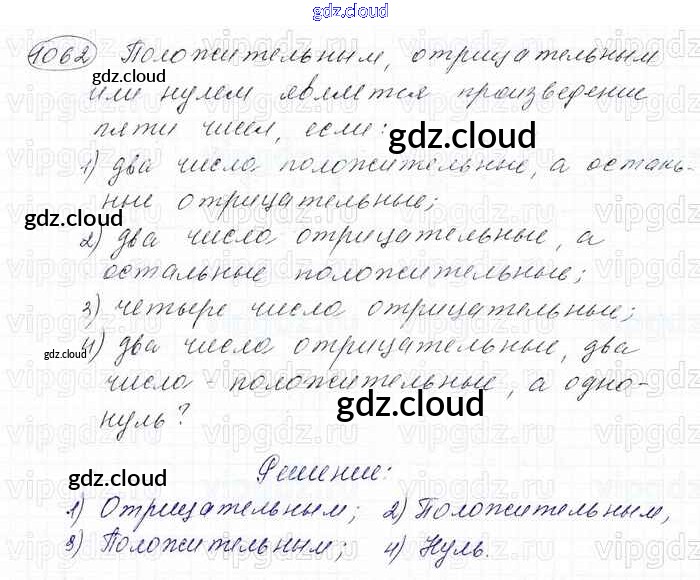 gdz.cloud
1062) Положительным, отрицательным
gdz.cloud
или нулем является произведение
пяти чисел, если:
gdz.cloud
1) два числа положительные, а осталь-
ные отрицательные;
gdz.cloud
2) два числа отрицательные, а
остальные положительные;
3) четыре числа отрицательные;
4) два числа отрицательные, два
gdz.cloud
числа - положительные, а одно-
нуль?
gdz.cloud
Решение:
gdz.cloud
1) Отрицательным; 2) Положительным,
3) Положительным; 4) Нуль.